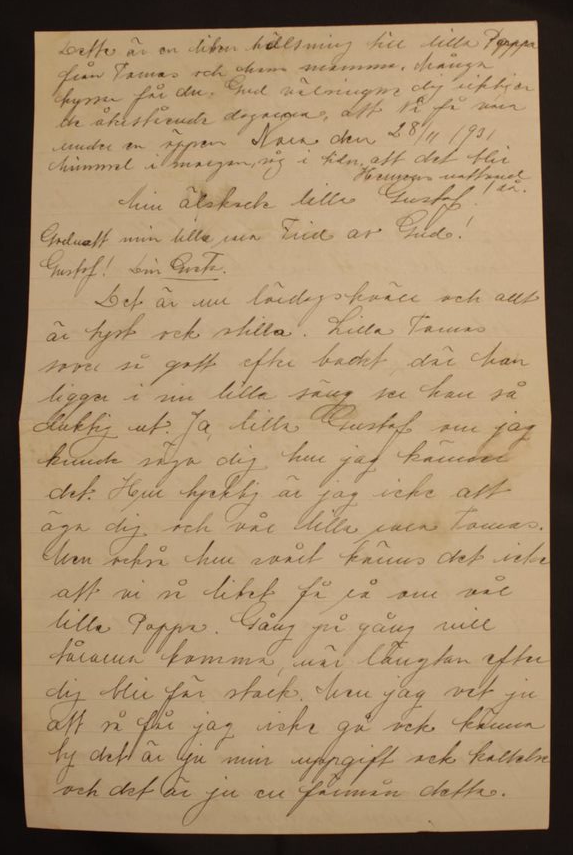 Detta är en liten hälsning till lilla Pappa
från Tomas och hans mamma. Många
kyssar får du. Gud välsigne dig
de återstående dagarna, att vi få vara
under en öppen Nora den 28/11 1931
himmel i morgon, i tiden, att det blir
Herrens
så.
Min älskade lilla Gustaf!
Godnatt min lilla Frid av Gud!
Gustaf! Din
Det är nu lördagskväll och allt
är tyst och stilla. Lilla Tomas
sover så gott efter badet, där han
ligger i sin lilla säng ser han så
duktig ut. Ja, lilla Gustaf om jag
kunde säga dig hur jag känner
det. Hur lycklig är jag icke att
äga dig och vår lilla Tomas.
Men också hur svårt känns det icke
att vi så litet få rå om vår
lilla Pappa. Gång på gång vill
tårarna komma, när längtan efter
dig blir för stark. Men jag vet ju
att så får jag icke gå och känna
ty det är ju min uppgift och kallelse
och det är ju en förmån detta.